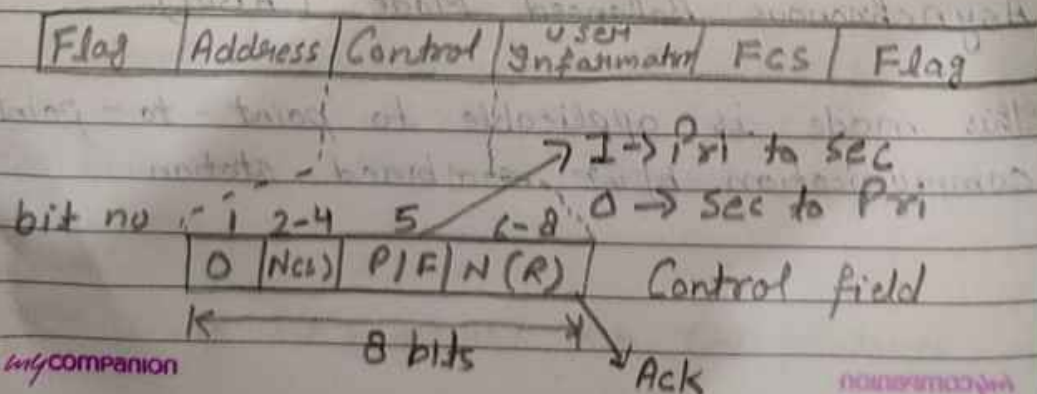 Flag Address Control User Information FCS Flag
1 → Pri to Sec
0 → Sec to Pri
bit no 1 2-4 5 6-8
0 N(s) P/F N(R) Control field
8 bits
Ack
mycompanion